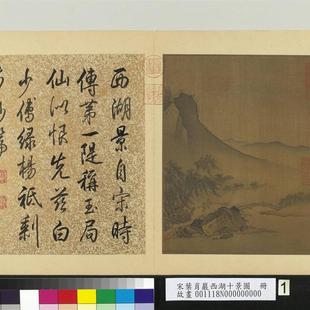 西湖景自宗時
傳第一隄稱玉局
仙似恨先芟白
少傅緑楊祗剩
宋葉肖巖西湖十景圖 冊
故畫 001118N000000000
1